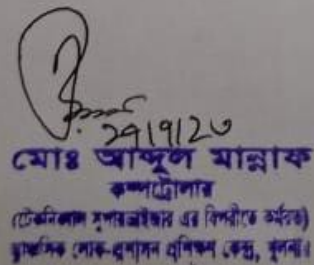 ২৭।৭।২৩
মোঃ আব্দুল মান্নাফ
কম্পট্রোলার
(টেকনিক্যাল সুপারভাইজার এর বিপরীতে কর্মরত)
আঞ্চলিক লোক-প্রশাসন প্রশিক্ষণ কেন্দ্র, খুলনা।